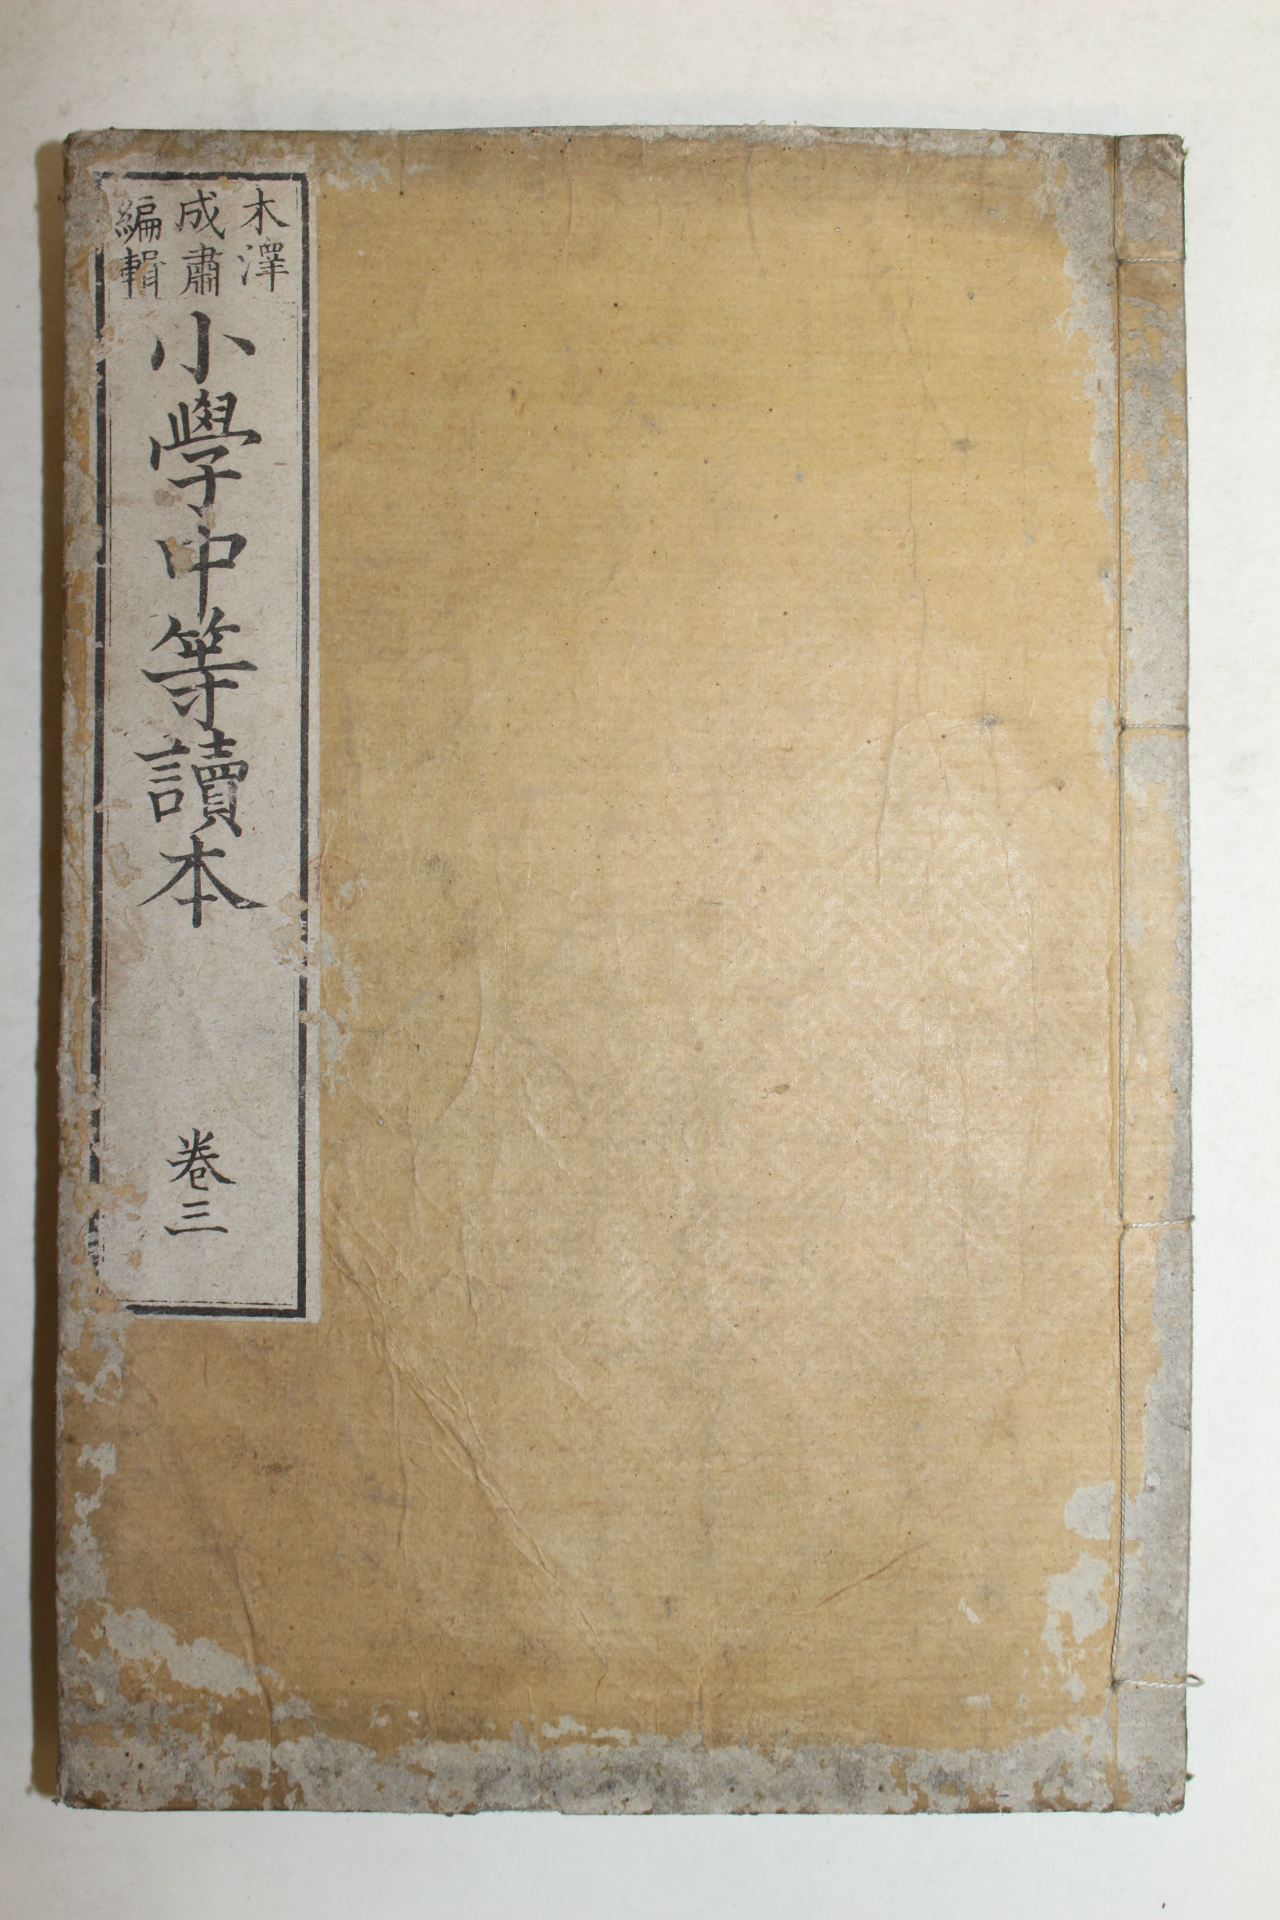 木澤
成肅
編輯
小學中等讀本
卷三